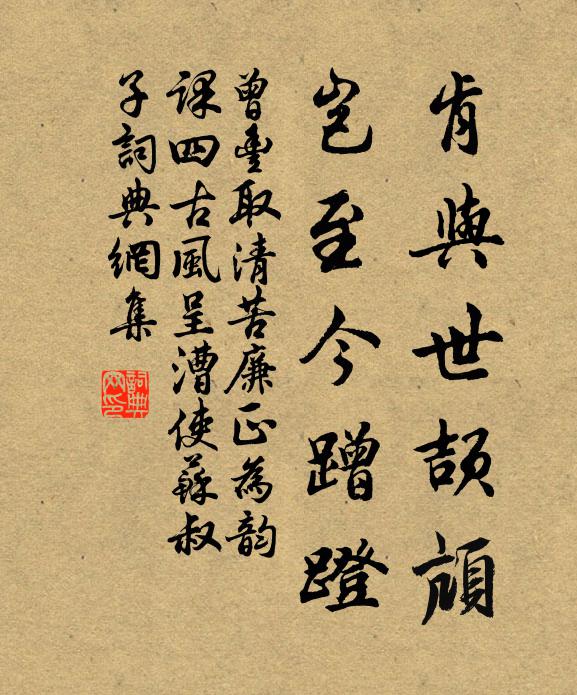 肯與世頡頏
豈至今蹭蹬
曾豊取清苦廉正為韵
課四古風呈漕使蘇叔
子詞典網集
詞典網印